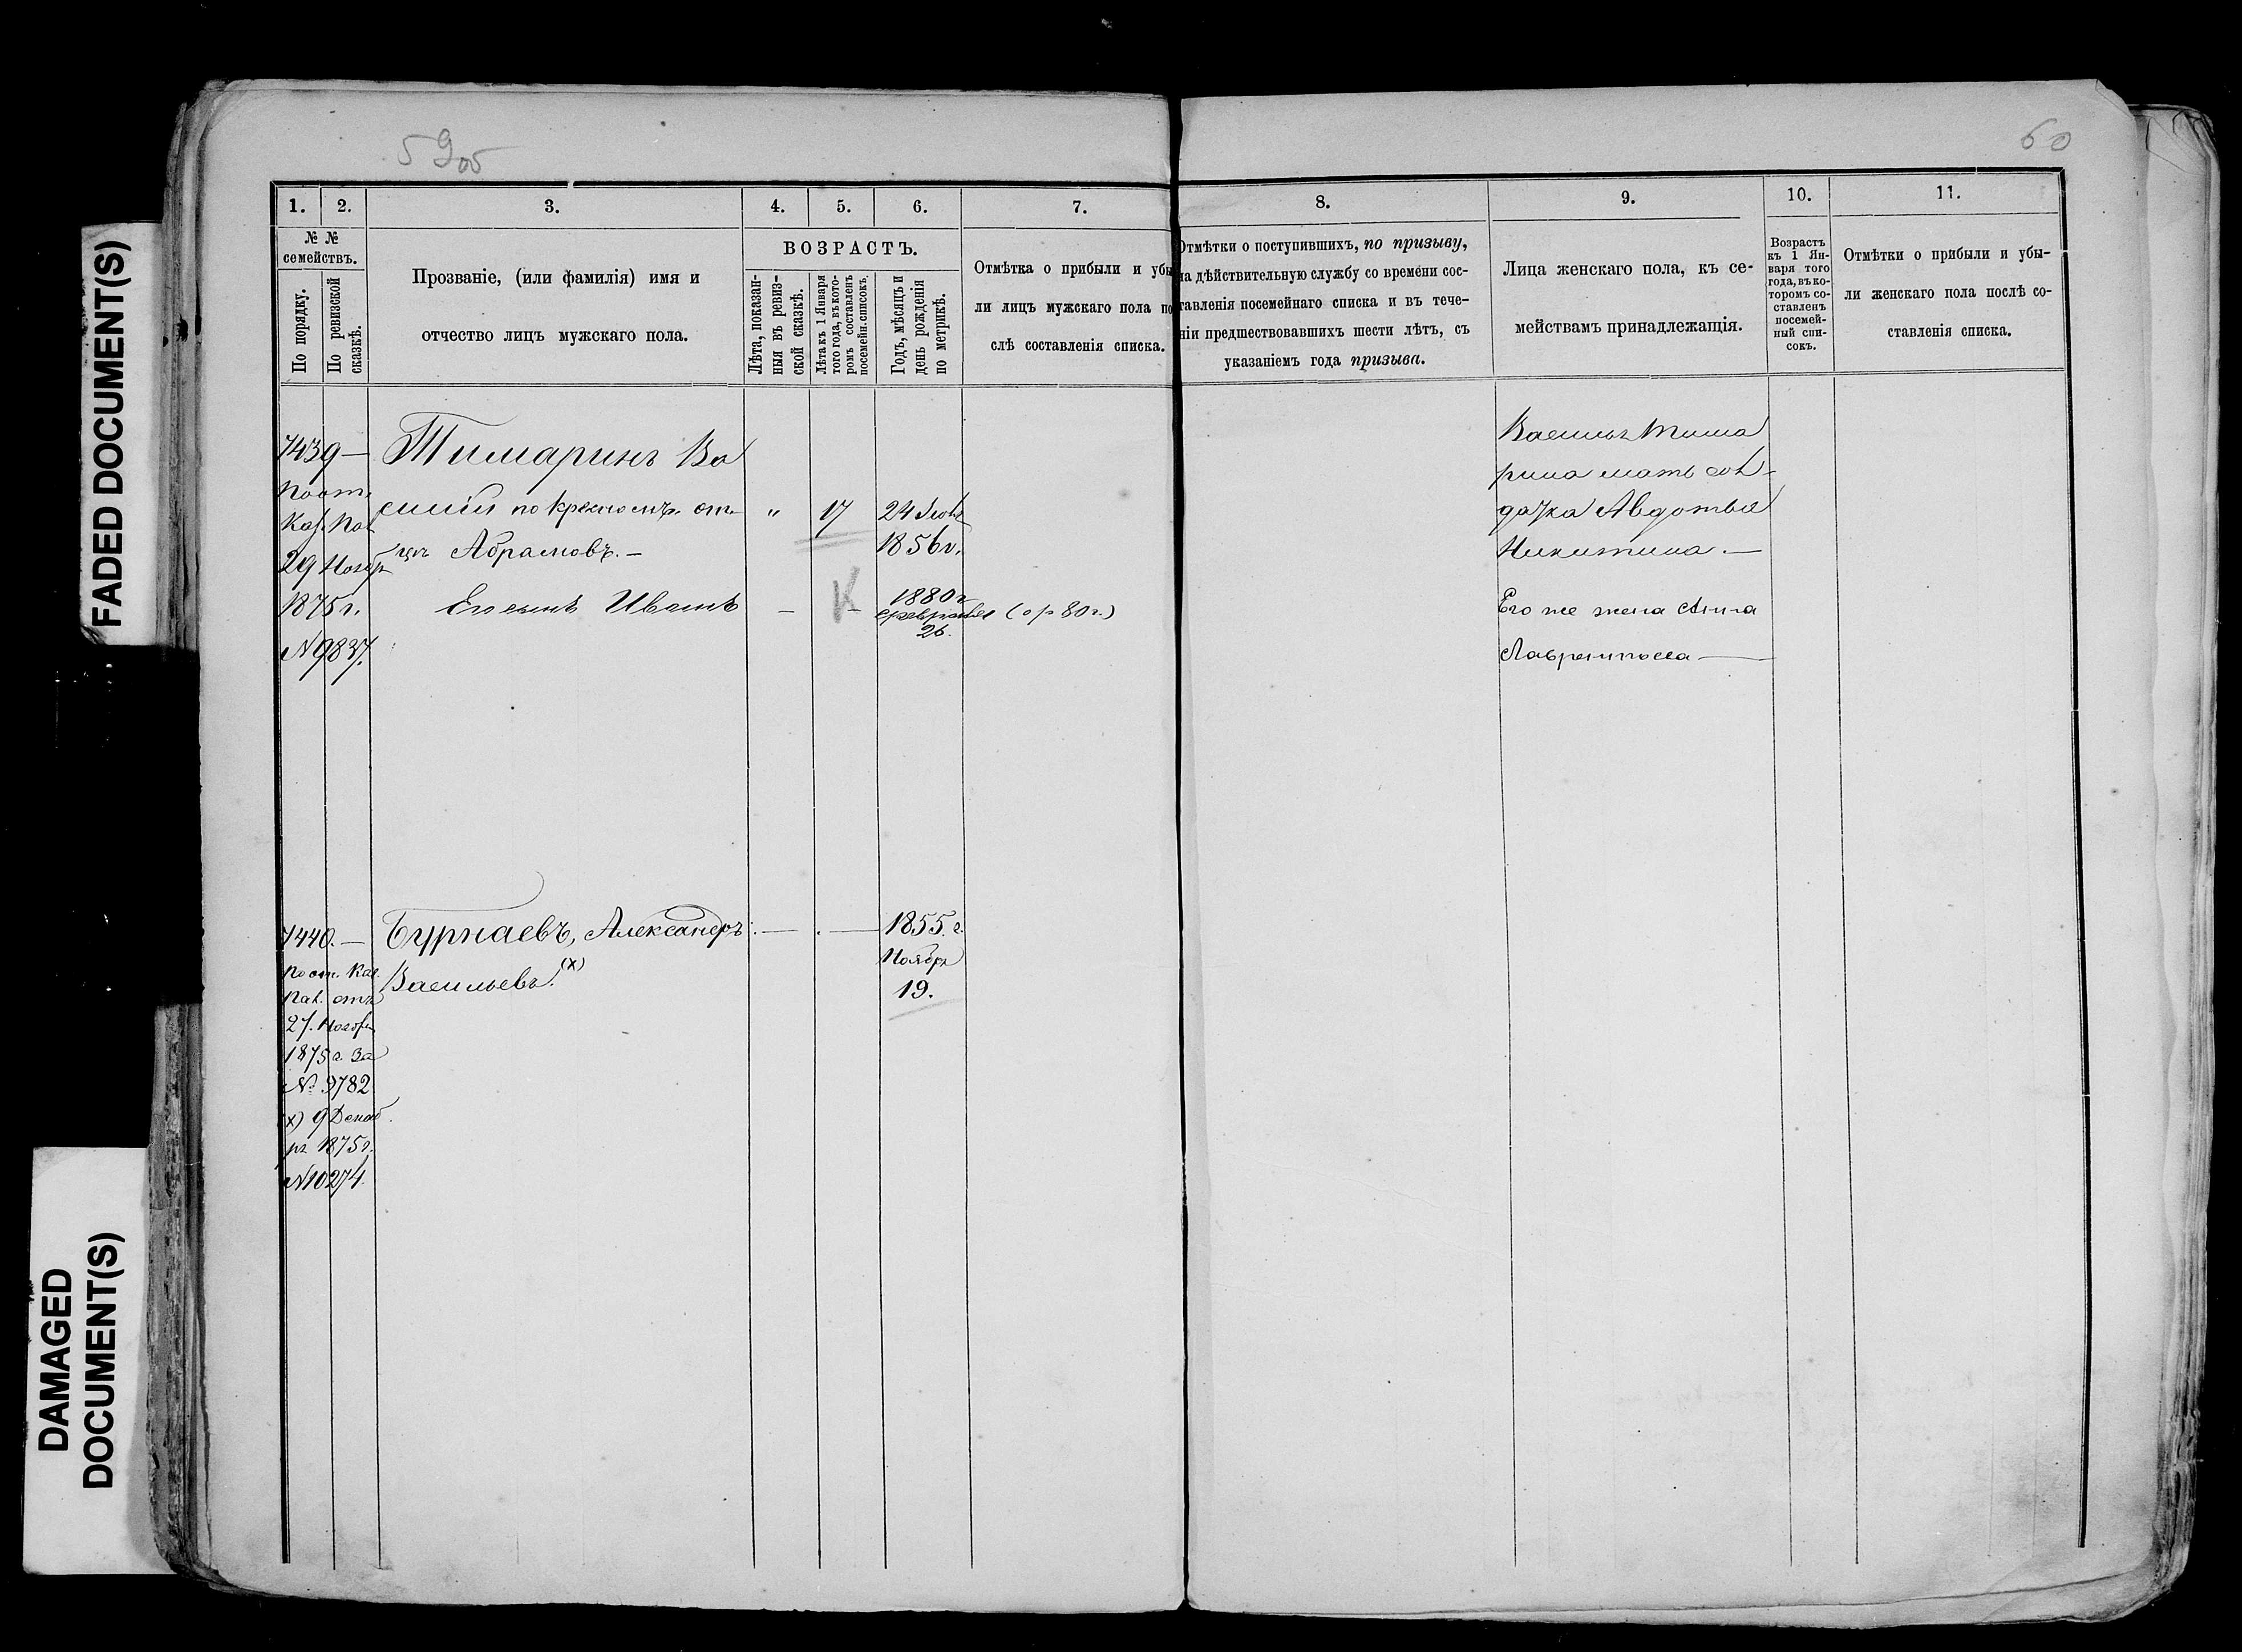 FADED DOCUMENT(S)
DAMAGED
DOCUMENT(S)
59об
60
1. 2. 3. 4. 5. 6. 7. 8. 9. 10. 11.
№ №
семействъ.
По порядку.
По ревизской
сказкѣ.
Прозваніе, (или фамилія) имя и
отчество лицъ мужскаго пола.
ВОЗРАСТЪ.
Лѣта, показан-
ныя въ ревиз-
ской сказкѣ.
Лѣта къ 1 Января
того года, въ кото-
ромъ составленъ
посемейн. списокъ.
Годъ, мѣсяцъ и
день рожденія
по метрикѣ.
Отмѣтка о прибыли и убы
ли лицъ мужскаго пола по
слѣ составленія списка.
Отмѣтки о поступившихъ, по призыву,
на дѣйствительную службу со времени сос-
тавленія посемейнаго списка и въ тече-
ніи предшествовавшихъ шести лѣтъ, съ
указаніемъ года призыва.
Лица женскаго пола, къ се-
мействамъ принадлежащія.
Возрастъ
къ 1 Ян-
варя того
года, въ ко-
торомъ со-
ставленъ
посемей-
ный спи-
сокъ.
Отмѣтки о прибыли и убы-
ли женскаго пола послѣ со-
ставленія списка.
7439 —
Пост.
Каз. Пал
29 Ноябр
1875 г.
№ 9837.
Тимаринъ Ва
силій по крестномъ от-
цѣ Абрамовъ. —
" 17 24 Іюля
1856 г.
Его сынъ Иванъ
— К — 1880 г.
февраля (о/р 80 г.)
26.
Василья Тима
рина мать сол-
датка Авдотья
Никитина. —
Его же жена Анна
Лаврентьева —
7440. —
Пост. Каз.
Пал. отъ
27. Ноября
1875 г. за
№ 9782
(х) 9 Декаб
ря 1875 г.
№ 10274.
Бурнаевъ, Александръ
Васильевъ. (х)
— . — 1855. г.
Ноября
19.